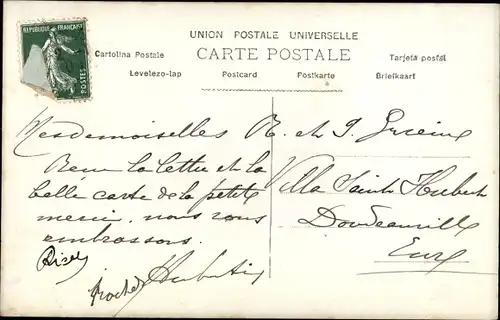 RÉPUBLIQUE FRANÇAISE
POSTES
UNION POSTALE UNIVERSELLE
CARTE POSTALE
Cartolina Postale
Tarjeta postal
Levelezo-lap
Postcard
Postkarte
Briefkaart
Mesdemoiselles R. et J.
Villa Saint Hubert
Doudeauville
Eure
Reçu la lettre et la
belle carte de la petite
merci, nous vous
embrassons.